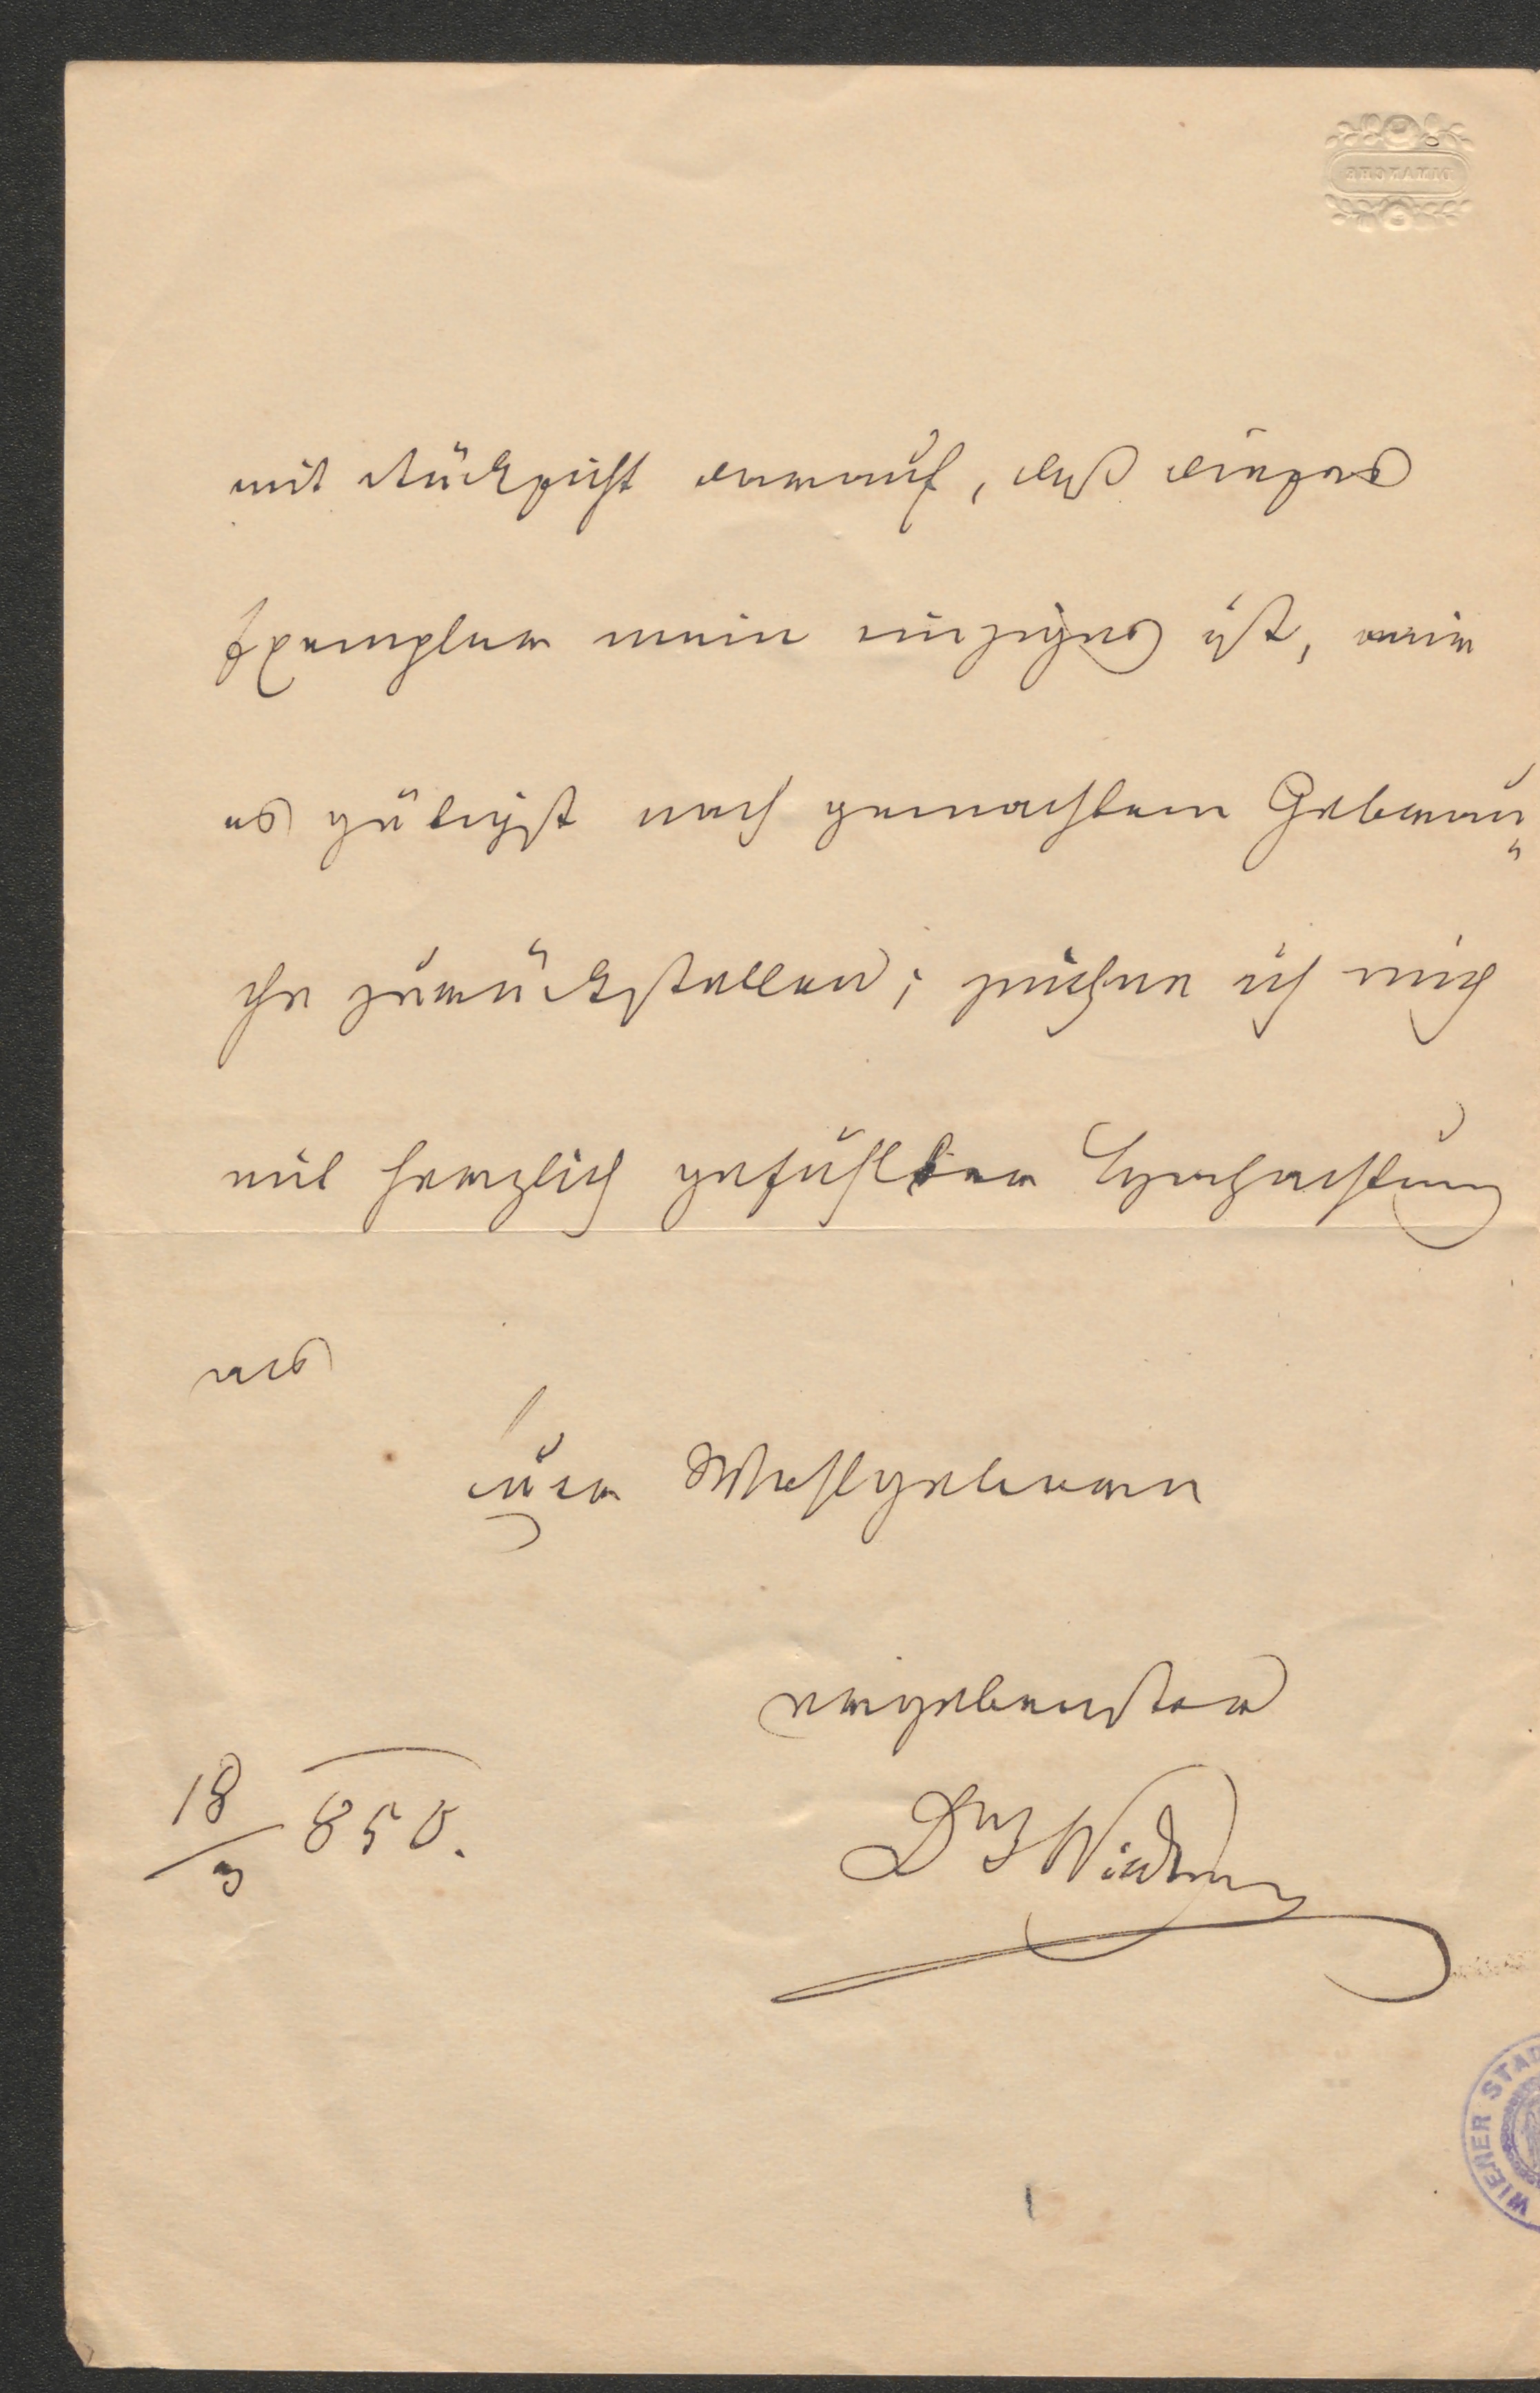 DIMANCHE
mit Rücksicht darauf, daß dieses
Exemplar mein einziges ist, mir
es gütigst nach gemachtem Gebrau„
che zurückstellen; zeichne ich mich
mit herzlich gefühlter Hochachtung
als
Euer Wohlgeboren
ergebenster
18/3 850.
Dr
WIENER STAD